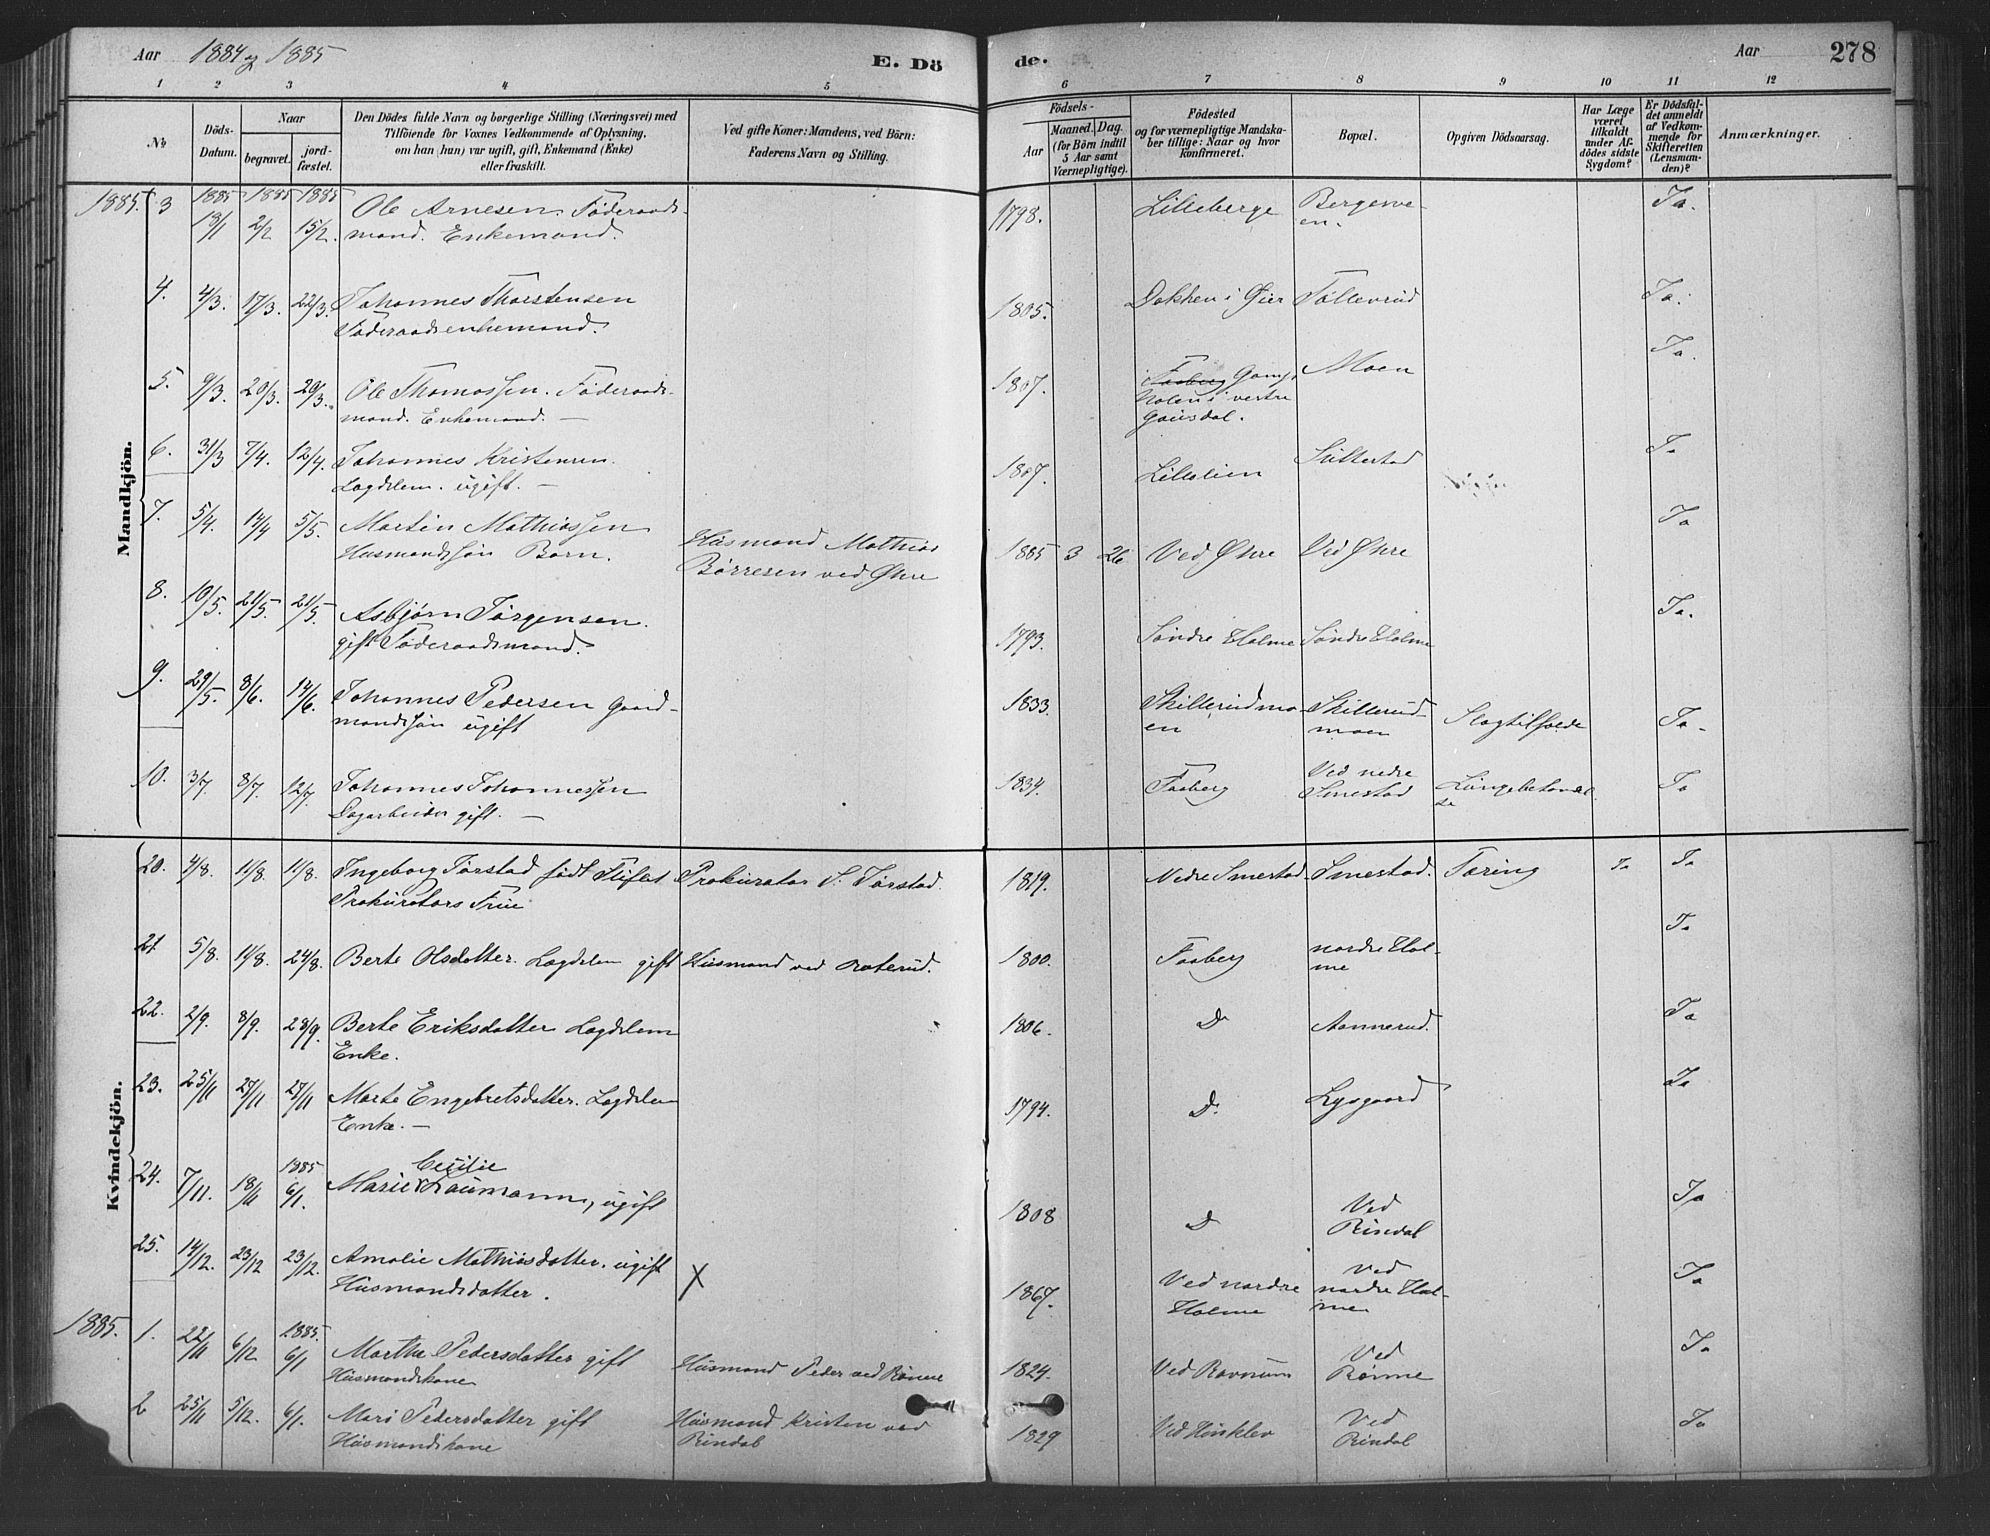 Aar 1884 og 1885
E. Dö
de.
Aar
278
1 2 3 4 5 6 7 8 9 10 11 12
No
Döds-
Datum.
Naar
begravet.
jord-
fæstet.
Den Dödes fulde Navn og borgerlige Stilling (Næringsvei) med
Tilföiende for Voxnes Vedkommende af Oplysning,
om han (hun) var ugift, gift, Enkemand (Enke)
eller fraskilt.
Ved gifte Koner: Mandens, ved Börn:
Faderens Navn og Stilling.
Födsels-
Aar
Maaned. Dag.
(for Börn indtil
5 Aar samt
Værnepligtige).
Födested
og for værnepligtige Mandska-
ber tillige: Naar og hvor
konfirmeret.
Bopæl.
Opgiven Dödsaarsag.
Har Læge
været
tilkaldt
under Af-
dödes sidste
Sygdom?
Er Dödsfal-
det anmeldt
af Vedkom-
mende for
Skifteretten
(Lensman-
den)?
Anmærkninger.
Mandkjön.
1885. 3 1885 13/1 1885 2/2 1885 15/2. Ole Arnesen. Föderaads-
mand. Enkemand.
1798. Lilleberge Bergeve-
en. Ja.
4. 4/3. 17/3. 22/3. Johannes Thorstensen
Föderaadsenkemand.
1805. Dokken i Øier Föllesrud Ja.
5. 9/3. 20/3. 29/3. Ole Thomassen. Föderaads-
mand. Enkemand. —
1807. Faaberg Gamp
Holen i vestre
Gausdal. Moen Ja.
6. 31/3 7/4. 12/4. Johannes Kristensen.
Lægdslem. ugift. —
1807. Lillelien Suttestad Ja
7. 5/4. 14/4 5/5. Martin Mathiassen
Husmandssön Barn.
Husmand Mathias
Börresen ved Øhre
1885 3 26 Ved Øhre Ved Øhre Ja
8. 10/5. 21/5. 21/5. Asbjørn Jörgensen.
gift Föderaadsmand.
1793. Söndre Holme Söndre Holme Ja.
9. 29/5. 8/6. 14/6. Johannes Pedersen Gaard-
mandssön ugift
1833. Skillerudmo-
en Skillerud-
moen Slagtilfælde Ja.
10. 3/7. 8/7. 12/7. Johannes Johannessen
Dagarbeider gift. —
1834. Faaberg Ved nedre
Smestad Lungebetændel
se Ja
Kvindekjön.
20. 4/8. 11/8. 11/8. Ingeborg Jörstad født Fliflet
Prokurators Frue
Prokurator S. Jörstad.
1819. Nedre Smestad Smestad. Tæring Ja Ja
21. 5/8. 11/8. 24/8. Berte Olsdatter. Lægdslem gift Husmand ved Roterud.
1800. Faaberg nordre Hol-
me Ja
22. 2/9. 8/9. 28/9. Berte Eriksdatter Lægdslem
Enke.
1806. D Aannerud. Ja
23. 25/11 27/11 27/11 Marte Engebretsdatter. Lægdslem
Enke. —
1794. D. Lysgaard Ja
24. 7/11. 18/11 1885 6/1. Marie Cecilie Laumann, ugift
1808 D Ved
Rindal Ja
25. 14/12. 23/12 23/12. Amalie Mathiasdatter. ugift
Husmandsdatter. X
1867. Ved nordre
Holme Ved
nordre Hol-
me. Ja
1885. 1. 22/11 6/12 1885. 6/1 Marthe Pedersdatter gift
Husmandskone
Husmand Peder ved Rönne
1824. Ved Ravnum Ved
Rönne Ja
2 25/11 5/12. 6/1. Mari Pedersdatter gift
Husmandskone
Husmand Kristen ved
Rindal
1829 Ved Hinklev Ved
Rindal Ja